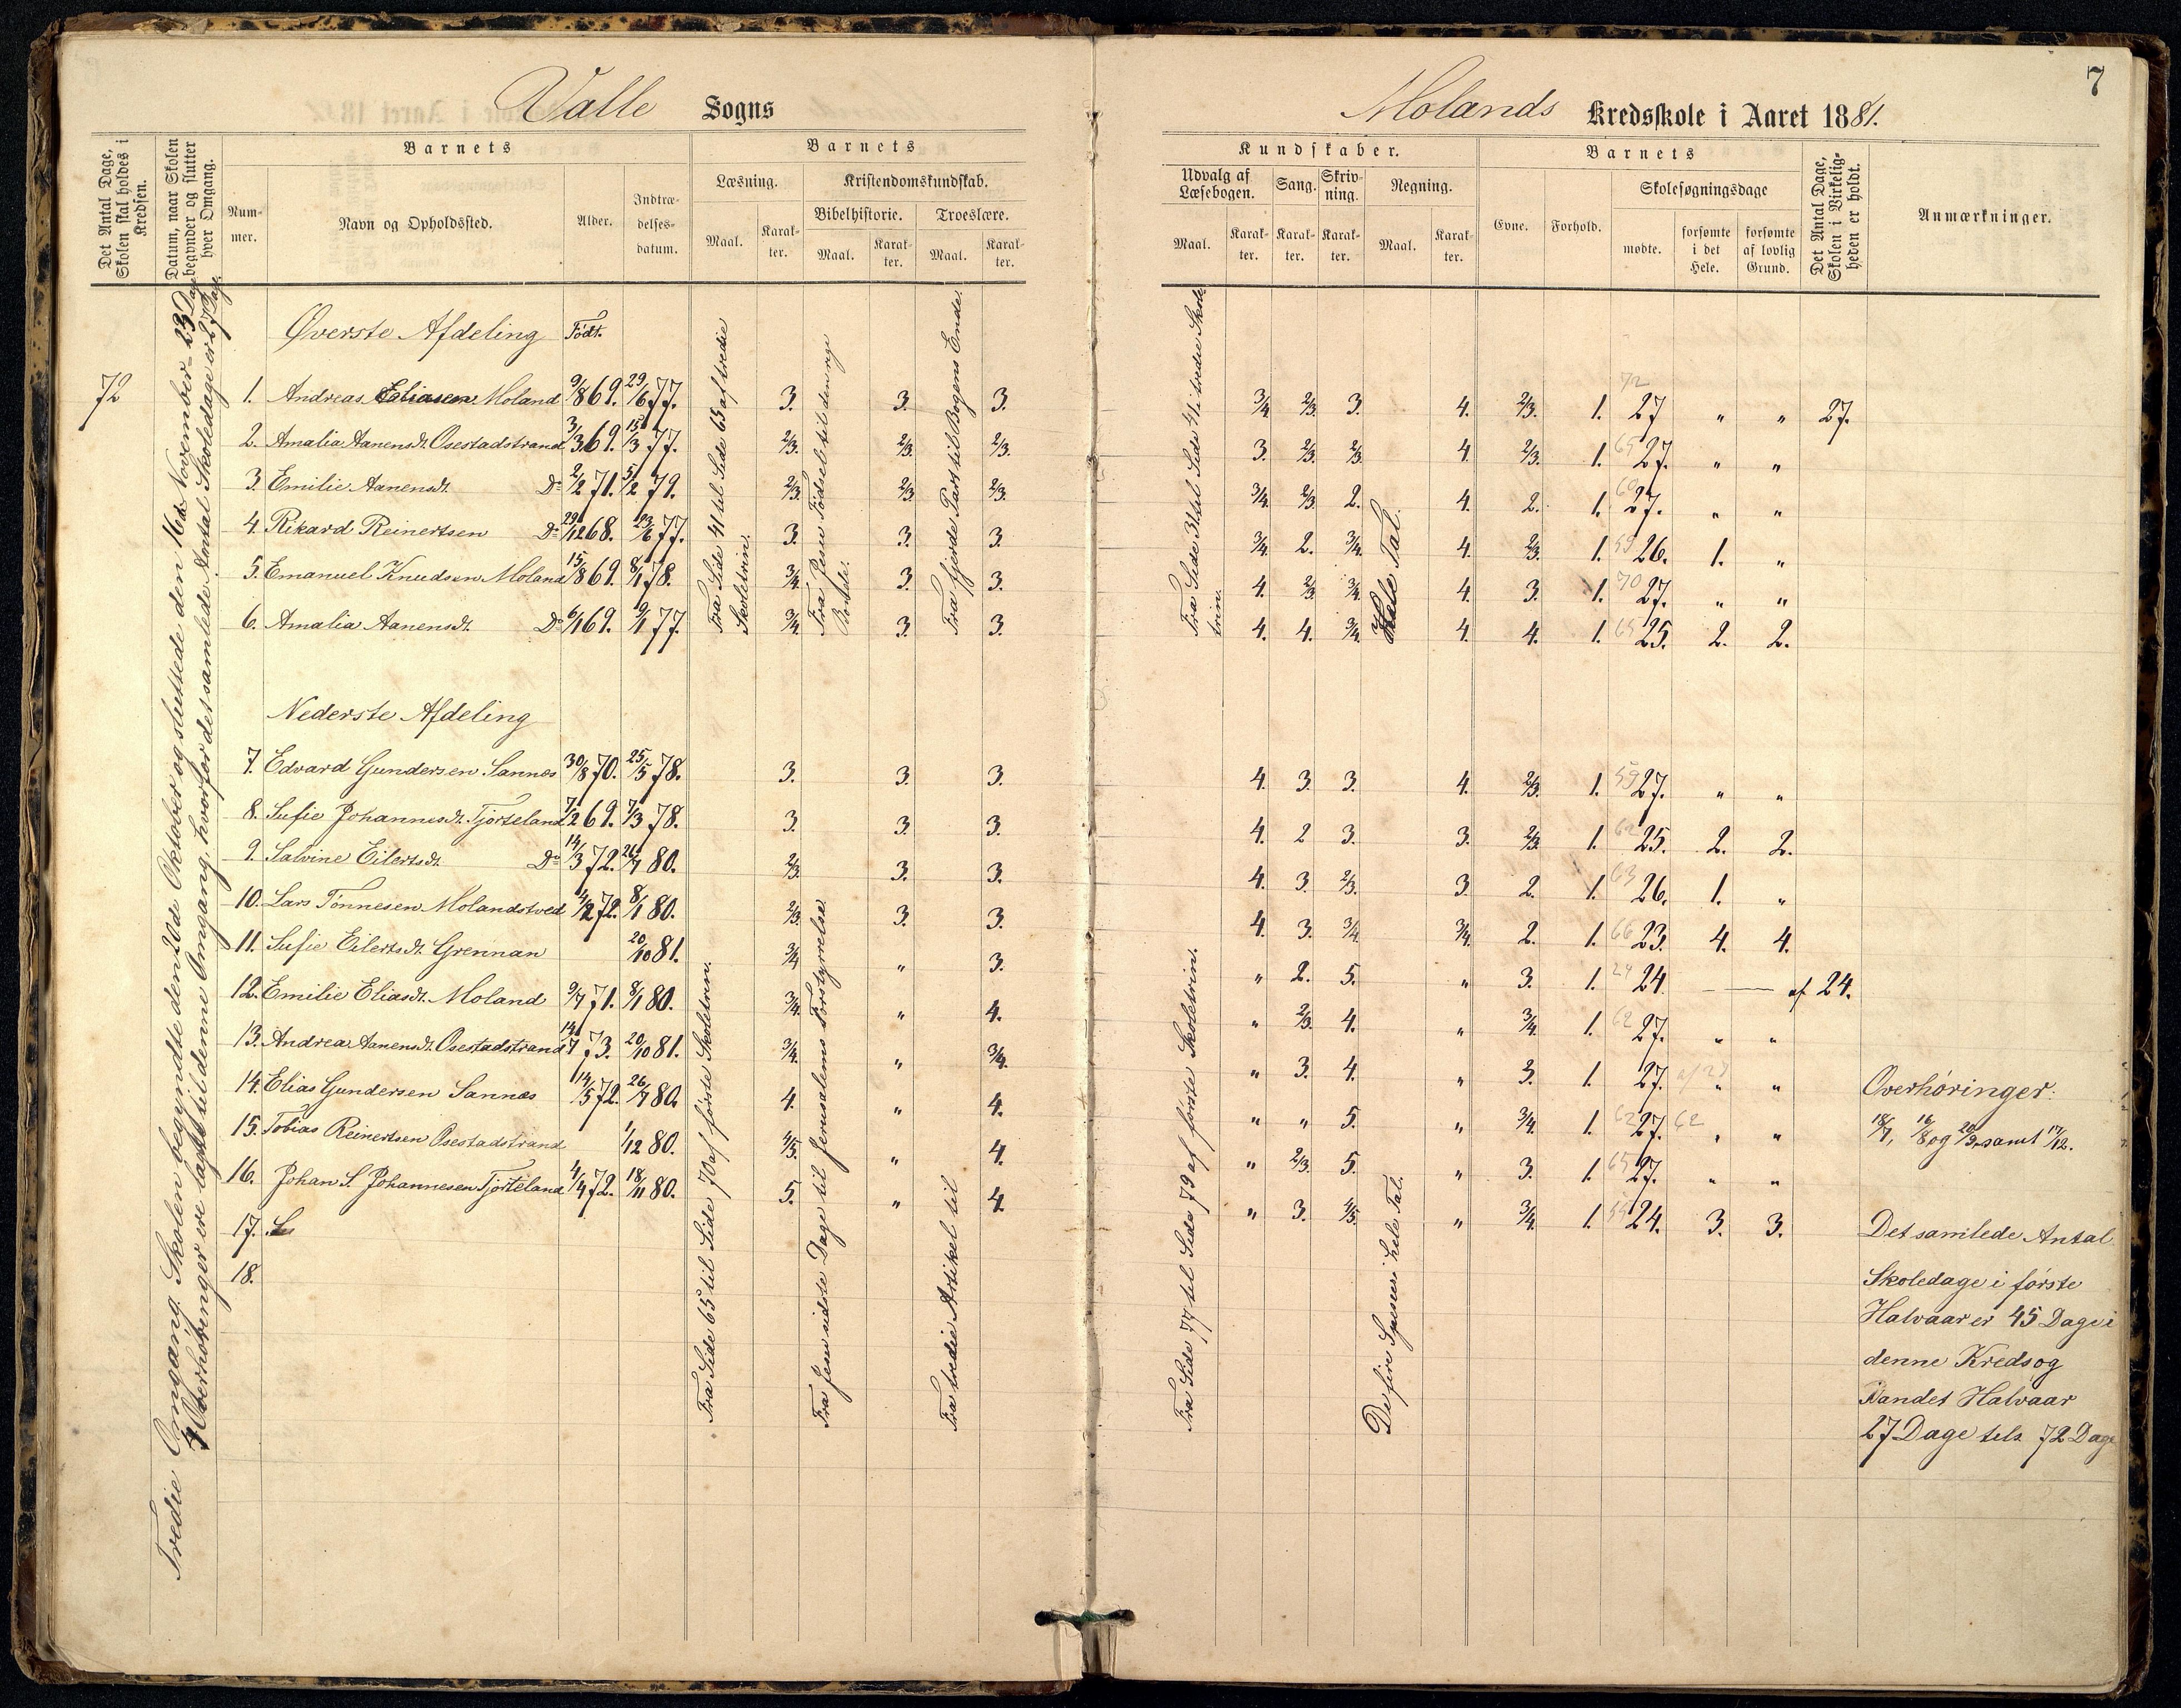 7
Valle Sogns
Molands Kredsskole i Aaret 1881.
Det Antal Dage, Skolen skal holdes i Kredsen.
Datum, naar Skolen begynder og slutter hver Omgang.
Barnets
Nummer.
Navn og Opholdssted.
Alder.
Indtrædelsesdatum.
Barnets
Læsning.
Maal.
Karakter.
Kristendomskundskab.
Bibelhistorie.
Maal.
Karakter.
Troeslære.
Maal.
Karakter.
Kundskaber.
Udvalg af Læsebogen.
Maal.
Karakter.
Sang.
Karakter.
Skrivning.
Karakter.
Regning.
Maal.
Karakter.
Barnets
Evne.
Forhold.
Skolesøgningsdage
mødte.
forsømte i det Hele.
forsømte af lovlig Grund.
Det Antal Dage, Skolen i Virkeligheden er holdt.
Anmærkninger.
72
Tredie Omgang. Skolen begyndte den 20de Oktober og sluttede den 16de November = 23 Dage
4 Overhøringer ere lagte til denne Omgang, hvorfor det samlede Antal Skoledage er 27 Dage.
Øverste Afdeling Født.
1. Andreas Eliasen Moland 9/8 69. 29/6 77. 3. 3. 3. 3/4 2/3. 3. 4. 2/3. 1. 72 27 " " 27.
2. Amalia Aanensdt. Osestadstrand 3/3 69. 15/3 77. 2/3. 2/3. 2/3. 3. 2/3. 2/3. 4. 2/3. 1. 65 27. " "
3. Emilie Aanensdt. Do 2/2 71. 5/2 79. 2/3. 2/3. 2/3. 3/4. 2/3. 2. 4. 2. 1. 60 27. " "
4. Rikard Reinertsen Do 29/12 68. 23/6 77. 3. 3. 3. 3/4 2. 3/4. 4. 2/3. 1. 59 26. 1. "
5. Emanuel Knudsen Moland 15/8 69. 8/1 78. 3/4. 3. 3. 4. 2/3. 3/4. 4. 3. 1. 70 27. " "
6. Amalia Aanensdt. Do 6/1 69. 9/1 77. 3/4. 3. 3. 4. 4. 3/4. 4. 4. 1. 65 25. 2. 2.
Fra Side 41 til Side 65 af tredie Skoletrin.
Fra Jesu Fødsel til den rige
Fra fjerde Part til Bogens Ende.
Fra Side 31 til Side 41 i tredie Skoletrin.
Hele Tal.
Nederste Afdeling
7. Edvard Gundersen Sannes 30/8 70. 25/5 78. 3. 3. 3. 4. 3. 3. 4. 2/3. 1. 59 27. " "
8. Sufie Johannesdt. Tjorteland 7/2 69. 7/3 78. 3. 3. 3. 4. 2 3. 3. 2/3. 1. 62 25. 2. 2.
9. Salvine Eilertsdt. Do 14/3 72. 26/7 80. 2/3. 3. 3. 4. 3. 2/3. 3. 2. 1. 63 26. 1. "
10. Lars Tønnesen Molandstved 4/2 72. 8/1 80. 2/3. 3. 3. 4. 3. 3/4. 3/4. 2. 1. 66 23. 4. 4.
11. Sufie Eilertsdt. Grennan 20/10 81. 3/4 " 3. " 2. 5. " 3. 1. 24 24 — af 24.
12. Emilie Eliasdt. Moland 9/7 71. 8/1 80. 3/4. " 4. " 2/3. 4. " 3/4. 1. 62 27. " "
13. Andrea Aanensdt. Osestadstrand 14/7 73. 20/10 81. 3/4. " 3/4. " 3. 4. " 3. 1. 27. af 27 " "
14. Elias Gundersen Sannes 14/5 72. 26/7 80. 4. " 4. " " 5. " 3/4. 1. 62 27. 62 " "
15. Tobias Reinertsen Osestadstrand 1/12 80. 4/5. " 4. " 2/3. 5. " 3. 1. 65 27. " "
16. Johan S. Johannesen Tjorteland 4/4 72. 18/11 80. 5. " 4. " 3. 4/5. " 3/4. 1. 24. 3. 3.
17.
18.
Fra Side 65 til Side 70 af første Skoletrin.
Fra Jesu sidste Dage til Jerusalems Forstyrrelse.
Fra tredie Artikel til
Fra Side 77 til Side 79 af første Skoletrin.
De fire Speseier i hele Tal.
Overhøringer:
18/7, 16/8 og 20/9 samt 17/12.
Det samlede Antal
Skoledage i første
Halvaar er 45 Dage i
denne Kreds og
i andet Halvaar
27 Dage tils. 72 Dage